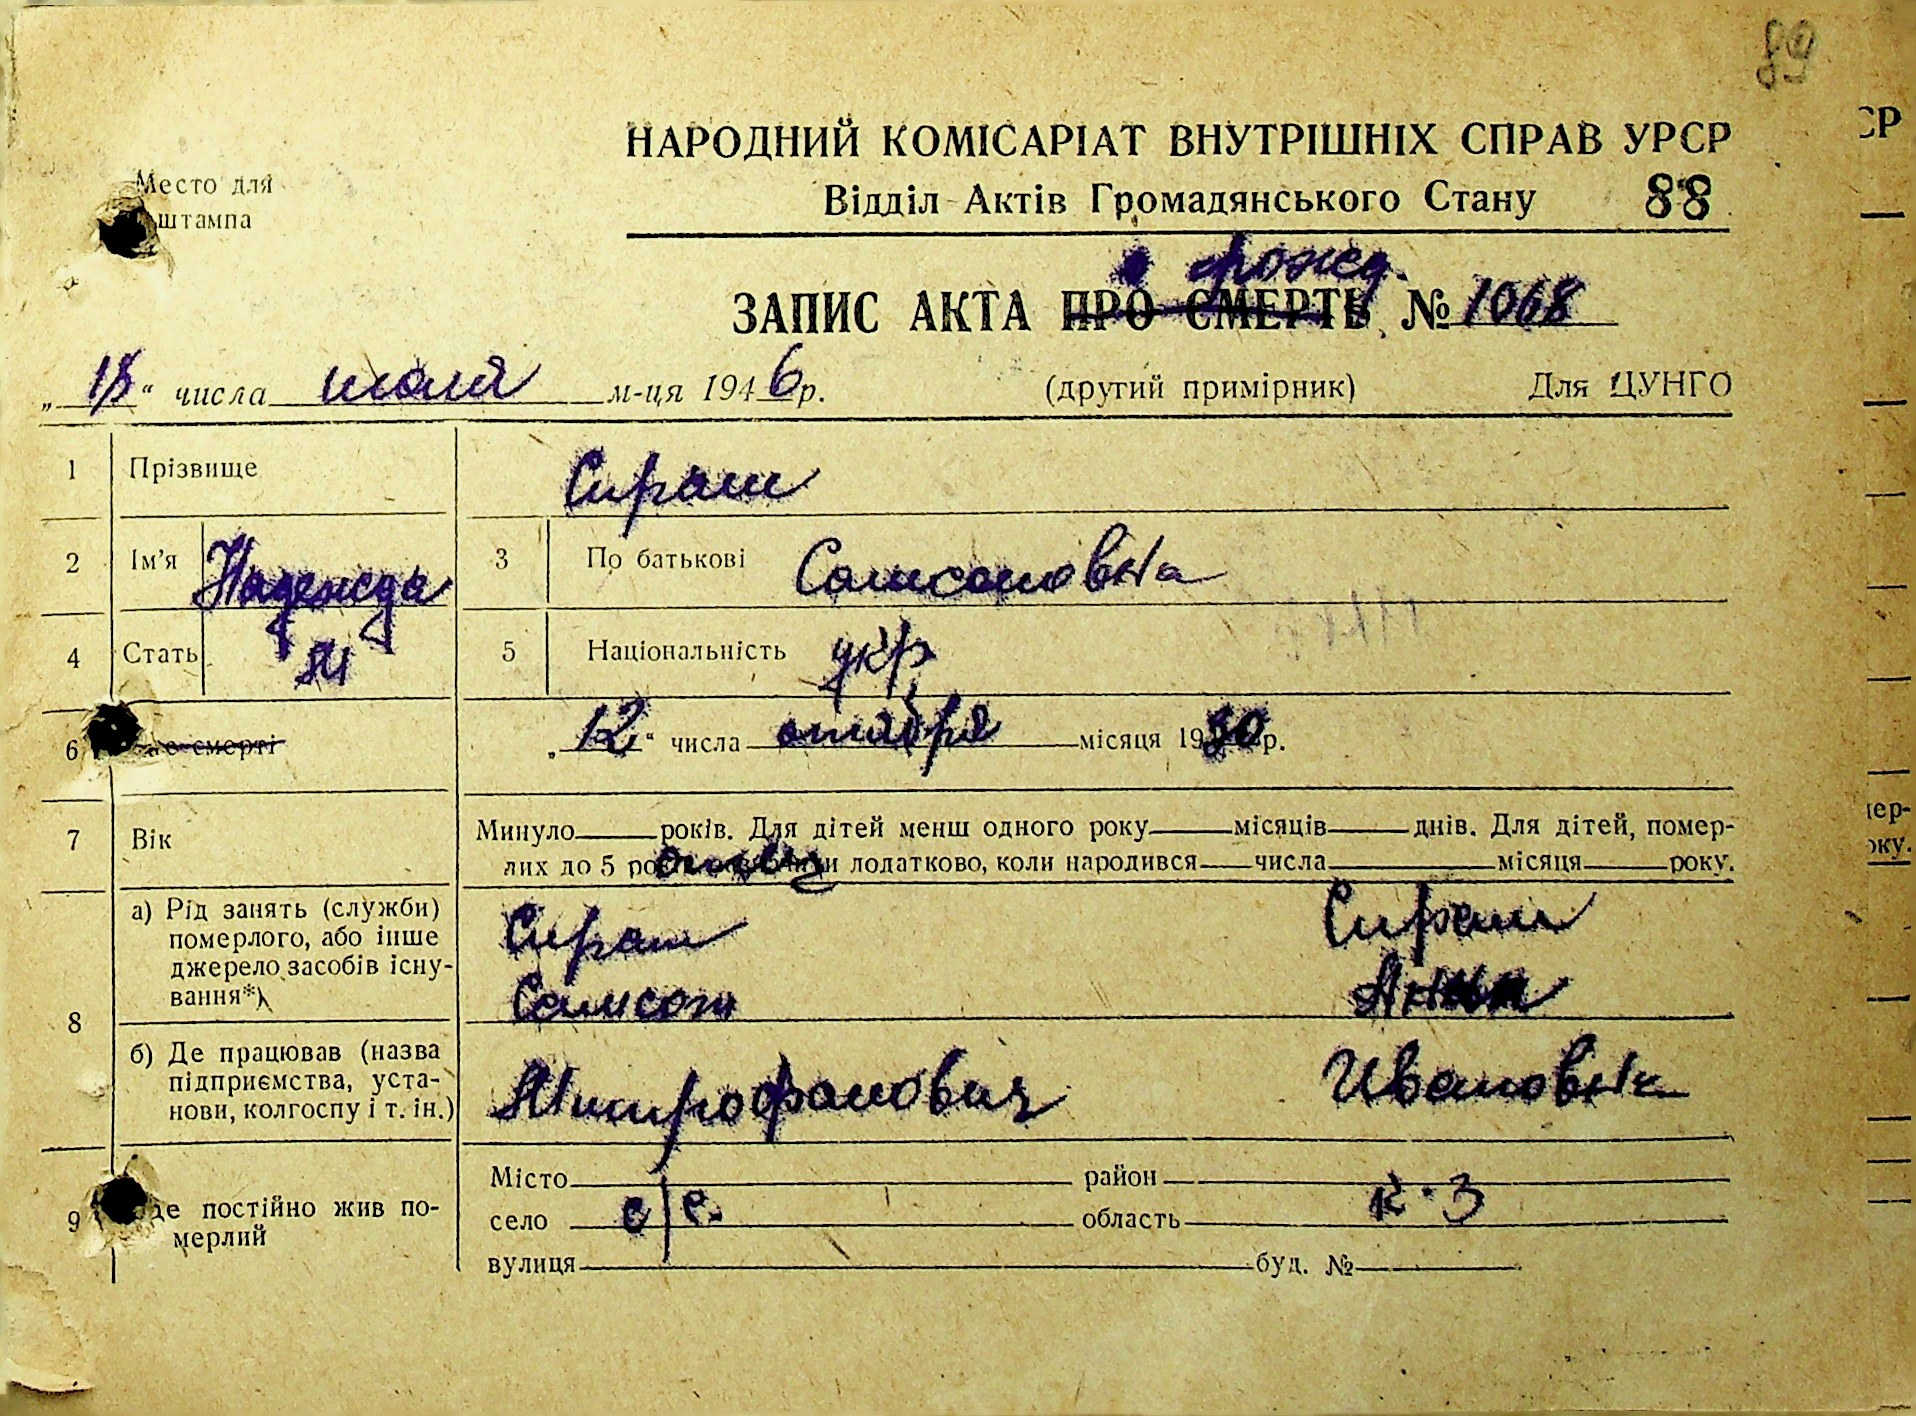 89
НАРОДНИЙ КОМІСАРІАТ ВНУТРІШНІХ СПРАВ УРСР
СР
Место для
штампа
Відділ Актів Громадянського Стану 88
о рожд.
ЗАПИС АКТА ПРО СМЕРТЬ № 1068
„18“ числа июля м-ця 1946р. (другий примірник) Для ЦУНГО
1 Прізвище Сираш
2 Ім'я Надежда 3 По батькові Самсоновна
4 Стать 5 Національність укр
6 смерті „12“ числа октября місяця 1930р.
7 Вік Минуло років. Для дітей менш одного року місяців днів. Для дітей, помер-
лих до 5 додатково, коли народився числа місяця року.
отец
8 а) Рід занять (служби) померлого, або інше джерело засобів існу-вання*) Сираш Самсон Сираш Анна
б) Де працював (назва підприємства, уста-нови, колгоспу і т. ін.) Митрофанович Ивановна
9 Де постійно жив по-мерлий Місто район
село с/с. область к-з
вулиця буд. №